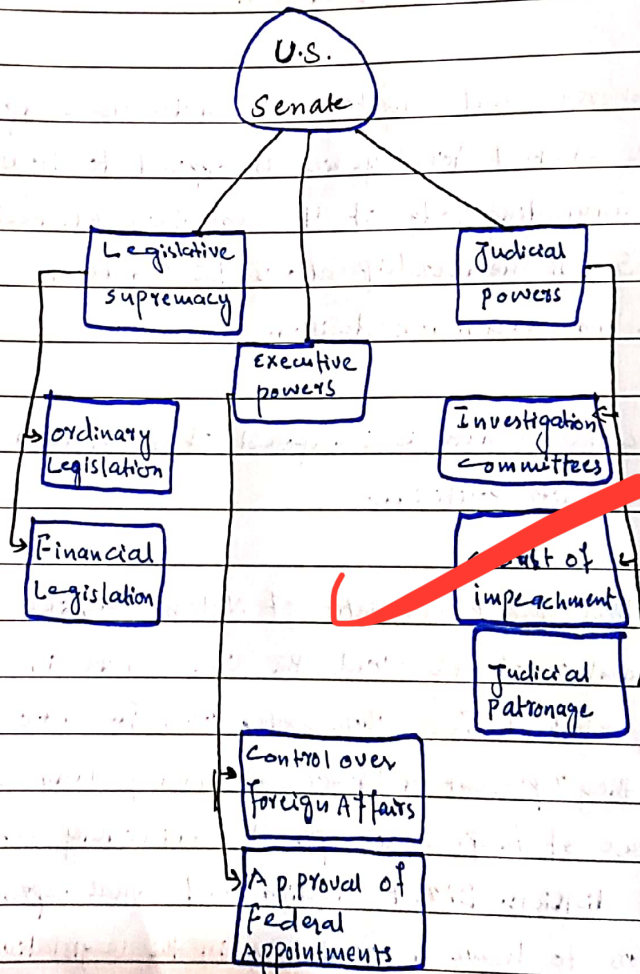 U.S.
Senate
Legislative
supremacy
Judicial
powers
Executive
powers
ordinary
Legislation
Investigation
committees
Financial
Legislation
of
impeachment
Judicial
Patronage
Control over
foreign Affairs
Approval of
Federal
Appointments